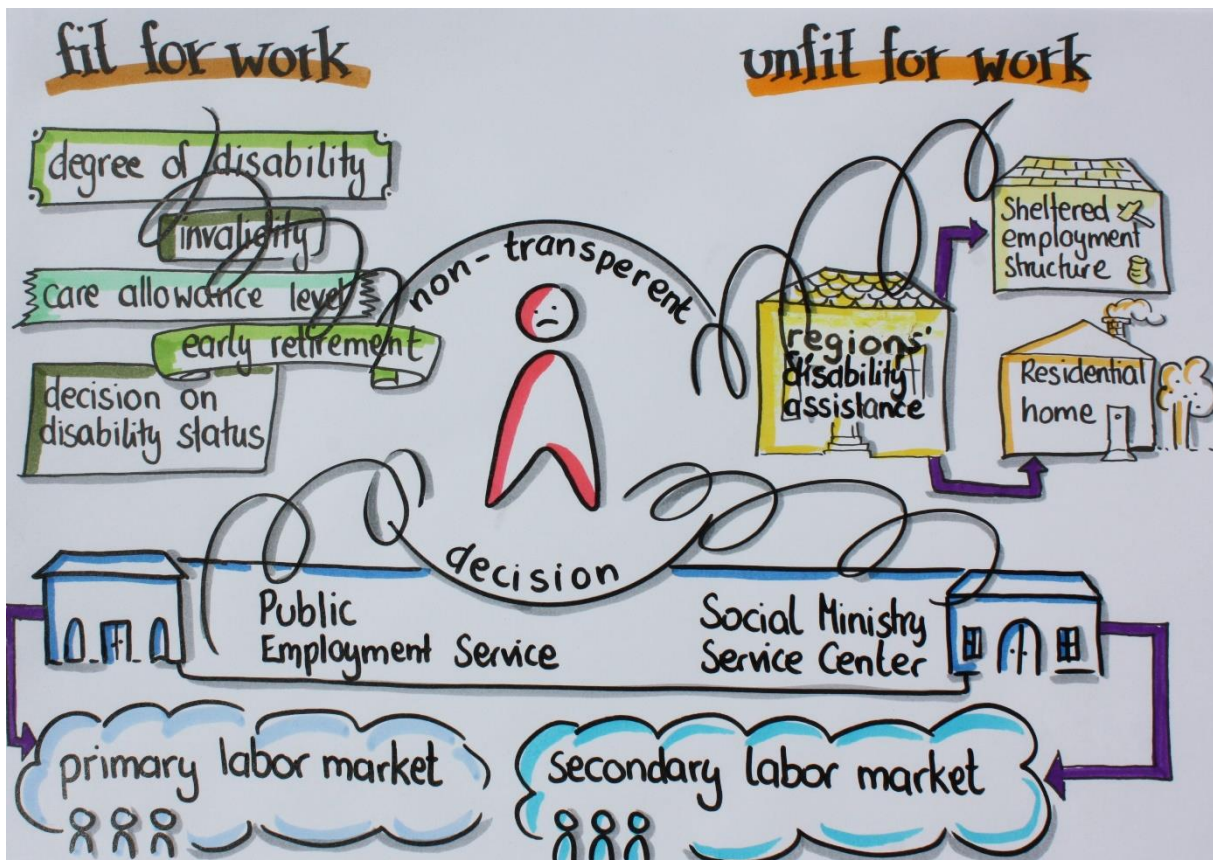 fit for work
unfit for work
degree of disability
invalidity
care allowance level
early retirement
decision on
disability status
non-transperent
decision
regions'
disability
assistance
Sheltered
employment
structure
Residential
home
Public
Employment Service
Social Ministry
Service Center
primary labor market
secondary labor market